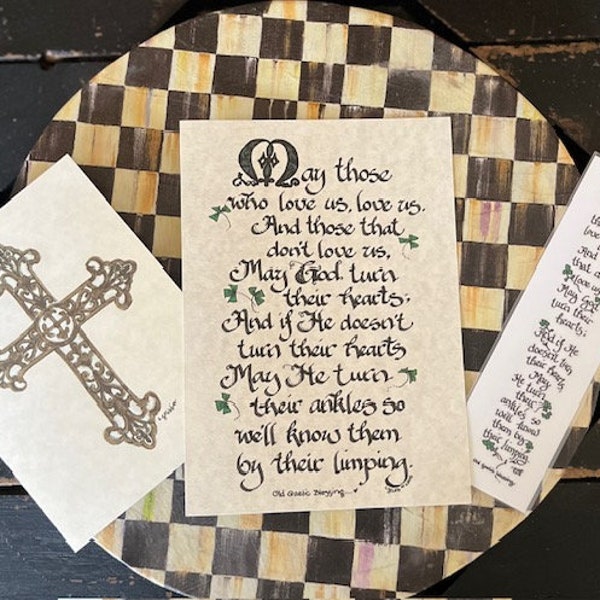 May those
who love us, love us.
And those that
don't love us,
May God turn
their hearts;
And if He doesn't
turn their hearts
May He turn
their ankles so
we'll know them
by their limping.
Old Gaelic Blessing....
love
And
that
love us
May God
turn their
hearts;
And if He
doesn't turn
their hearts
May
He turn
their
ankles so
we'll know
them by
their limping
Old Gaelic Blessing